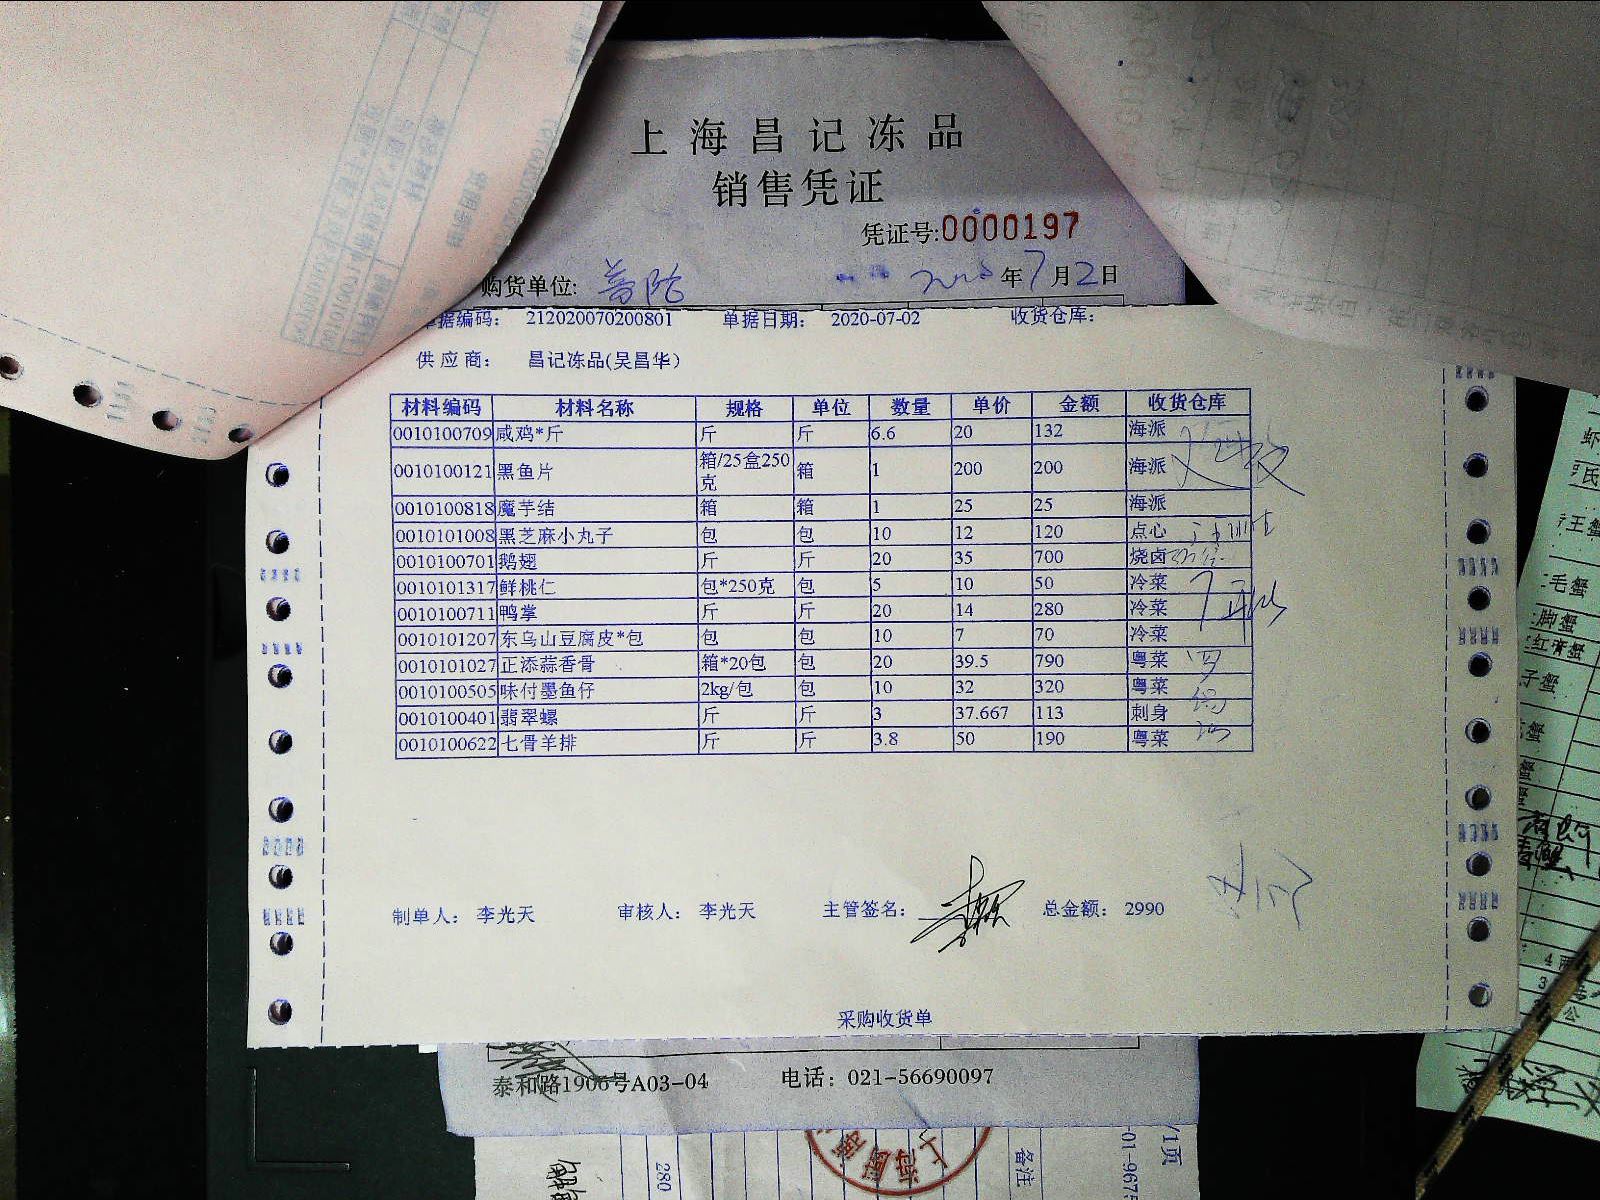 上海昌记冻品
销售凭证
凭证号:0000197
购货单位: 年7月2日
据编码: 212020070200801 单据日期: 2020-07-02 收货仓库:
供应商: 昌记冻品(吴昌华)
材料编码 材料名称 规格 单位 数量 单价 金额 收货仓库
0010100709 咸鸡*斤 斤 斤 6.6 20 132 海派
0010100121 黑鱼片 箱/25盒250克 箱 1 200 200 海派
0010100818 魔芋结 箱 箱 1 25 25 海派
0010101008 黑芝麻小丸子 包 包 10 12 120 点心
0010100701 鹅翅 斤 斤 20 35 700 烧卤
0010101317 鲜桃仁 包*250克 包 5 10 50 冷菜
0010100711 鸭掌 斤 斤 20 14 280 冷菜
0010101207 东乌山豆腐皮*包 包 包 10 7 70 冷菜
0010101027 正添蒜香骨 箱*20包 包 20 39.5 790 粤菜
0010100505 味付墨鱼仔 2kg/包 包 10 32 320 粤菜
0010100401 翡翠螺 斤 斤 3 37.667 113 刺身
0010100622 七骨羊排 斤 斤 3.8 50 190 粤菜
制单人: 李光天 审核人: 李光天 主管签名: 总金额: 2990
采购收货单
泰和路1906号A03-04 电话: 021-56690097
280
备注
/1页